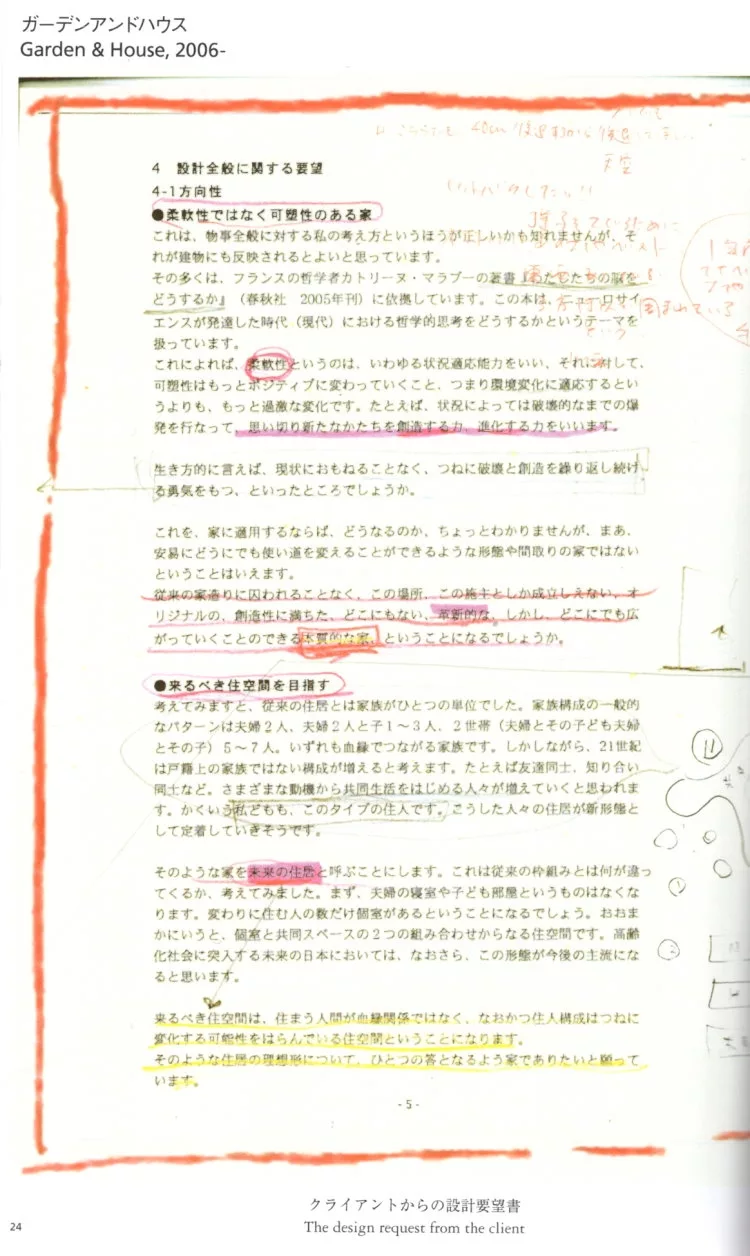 ガーデンアンドハウス
Garden & House, 2006-
40cm
天空
4 設計全般に関する要望
4-1方向性
●柔軟性ではなく可塑性のある家
これは、物事全般に対する私の考え方というほうが正しいかも知れませんが、そ
れが建物にも反映されるとよいと思っています。
その多くは、フランスの哲学者カトリーヌ・マラブーの著書『わたしたちの脳を
どうするか』(春秋社 2005年刊)に依拠しています。この本は、ニューロサイ
エンスが発達した時代(現代)における哲学的思考をどうするかというテーマを
扱っています。
これによれば、柔軟性というのは、いわゆる状況適応能力をいい、それに対して、
可塑性はもっとポジティブに変わっていくこと、つまり環境変化に適応するとい
うよりも、もっと過激な変化です。たとえば、状況によっては破壊的なまでの爆
発を行なって、思い切り新たなかたちを創造する力、進化する力をいいます。
生き方的に言えば、現状におもねることなく、つねに破壊と創造を繰り返し続け
る勇気をもつ、といったところでしょうか。
これを、家に適用するならば、どうなるのか、ちょっとわかりませんが、まあ、
安易にどうにでも使い道を変えることができるような形態や間取りの家ではない
ということはいえます。
従来の家造りに囚われることなく、この場所、この施主としか成立しえない、オ
リジナルの、創造性に満ちた、どこにもない、革新的な、しかし、どこにでも広
がっていくことのできる本質的な家、ということになるでしょうか。
●来るべき住空間を目指す
考えてみますと、従来の住居とは家族がひとつの単位でした。家族構成の一般的
なパターンは夫婦2人、夫婦2人と子1〜3人、2世帯(夫婦とその子ども夫婦
とその子)5〜7人。いずれも血縁でつながる家族です。しかしながら、21世紀
は戸籍上の家族ではない構成が増えると考えます。たとえば友達同士、知り合い
同士など。さまざまな動機から共同生活をはじめる人々が増えていくと思われま
す。かくいう私どもも、このタイプの住人です。こうした人々の住居が新形態と
して定着していきそうです。
そのような家を未来の住居と呼ぶことにします。これは従来の枠組みとは何が違っ
てくるか、考えてみました。まず、夫婦の寝室や子ども部屋というものはなくな
ります。変わりに住む人の数だけ個室があるということになるでしょう。おおま
かにいうと、個室と共同スペースの2つの組み合わせからなる住空間です。高齢
化社会に突入する未来の日本においては、なおさら、この形態が今後の主流にな
ると思います。
来るべき住空間は、住まう人間が血縁関係ではなく、なおかつ住人構成はつねに
変化する可能性をはらんでいる住空間ということになります。
そのような住居の理想形について、ひとつの答となるよう家でありたいと願って
います。
- 5 -
クライアントからの設計要望書
The design request from the client
24